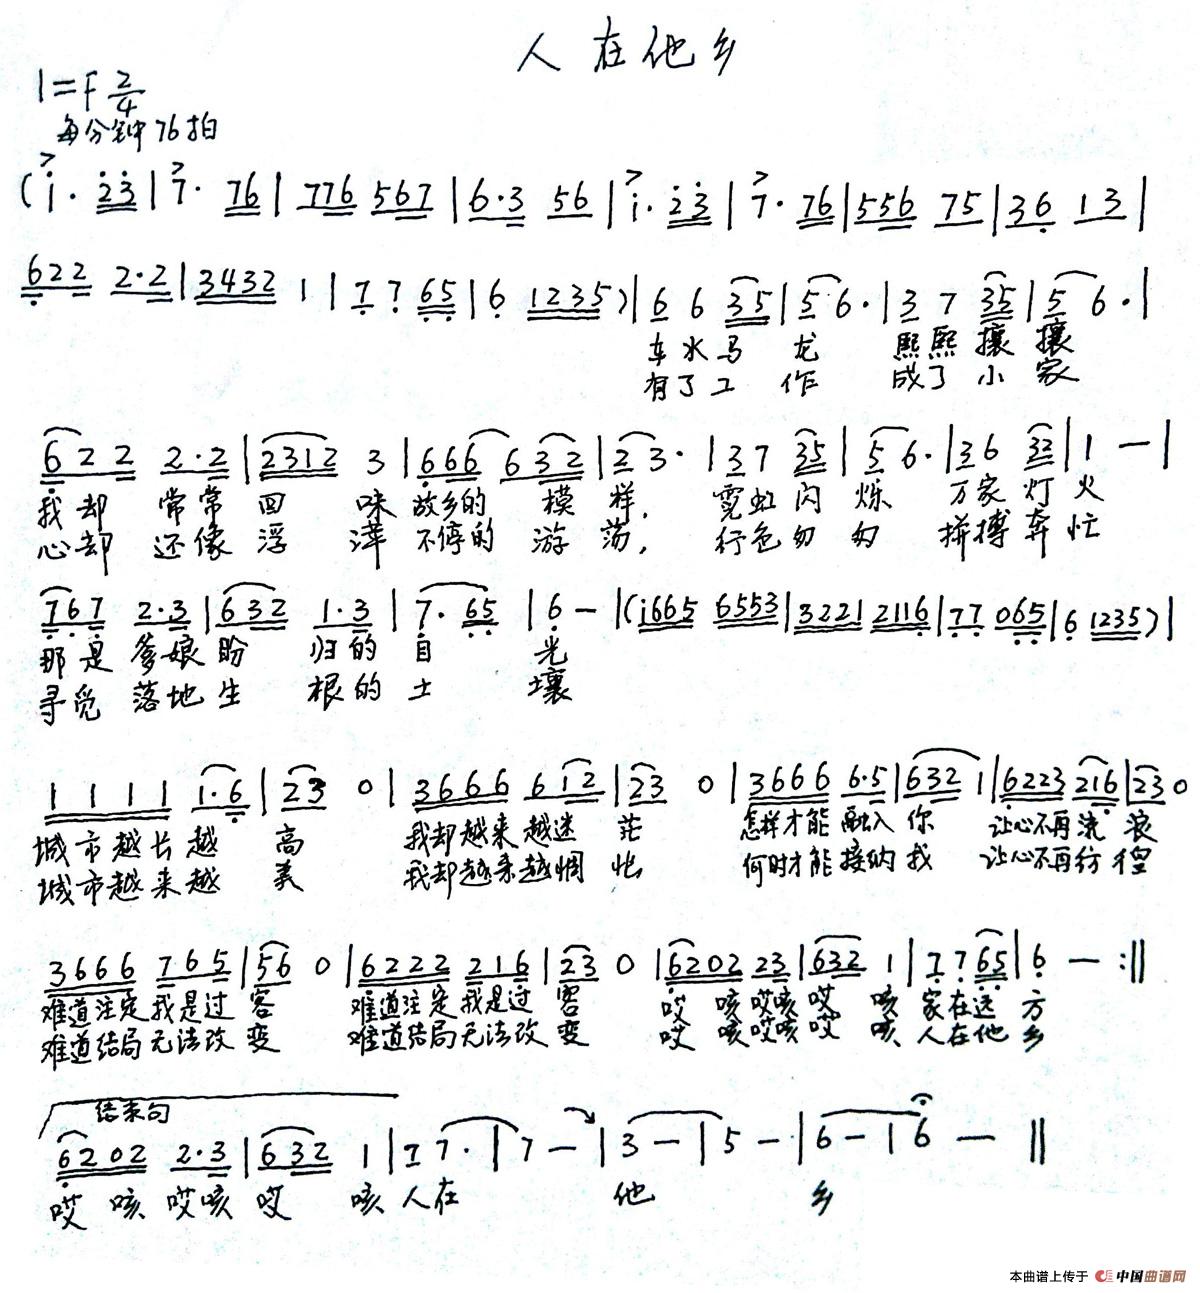 人在他乡
1=F 2/4
每分钟76拍
(i· 23 | 7· 76 | 776 567 | 6·3 56 | i· 23 | 7· 76 | 556 75 | 36 13 |
622 2·2 | 3432 1 | 77 65 | 6 1235) | 6 6 35 | 5 6· | 3 7 35 | 5 6· |
车水马 龙 熙熙攘 攘
有了工 作 成了小 家
622 2·2 | 2312 3 | 666 632 | 2 3· | 37 35 | 5 6· | 36 32 | 1 — |
我却 常常回 味 故乡的 模 样, 霓虹闪 烁 万家灯 火
心却 还像浮 萍 不停的 游 荡, 行色匆 匆 拼搏奔 忙
767 2·3 | 632 1·3 | 7· 65 | 6 — | (i665 6553 | 3221 2116 | 77 065 | 6 1235) |
那是 爹娘盼 归的 目 光
寻觅 落地生 根的 土 壤
1111 1·6 | 23 0 | 3666 612 | 23 0 | 3666 6·5 | 632 1 | 6223 216 | 23 0
城市越长越 高 我却越来越迷 茫 怎样才能融入你 让心不再流 浪
城市越来越 美 我却越来越惆 怅 何时才能接纳我 让心不再彷 徨
3666 765 | 56 0 | 6222 216 | 23 0 | 6202 23 | 632 1 | 77 65 | 6 — :‖
难道注定我是过 客 难道注定我是过 客 哎 咳哎咳 哎 咳 家在远 方
难道结局无法改 变 难道结局无法改 变 哎 咳哎咳 哎 咳 人在他 乡
结束句
6202 2·3 | 632 1 | 1 7· | 7 — | 3 — | 5 — | 6 — | 6 — ‖
哎 咳 哎咳 哎 咳 人在 他 乡
本曲谱上传于 中国曲谱网